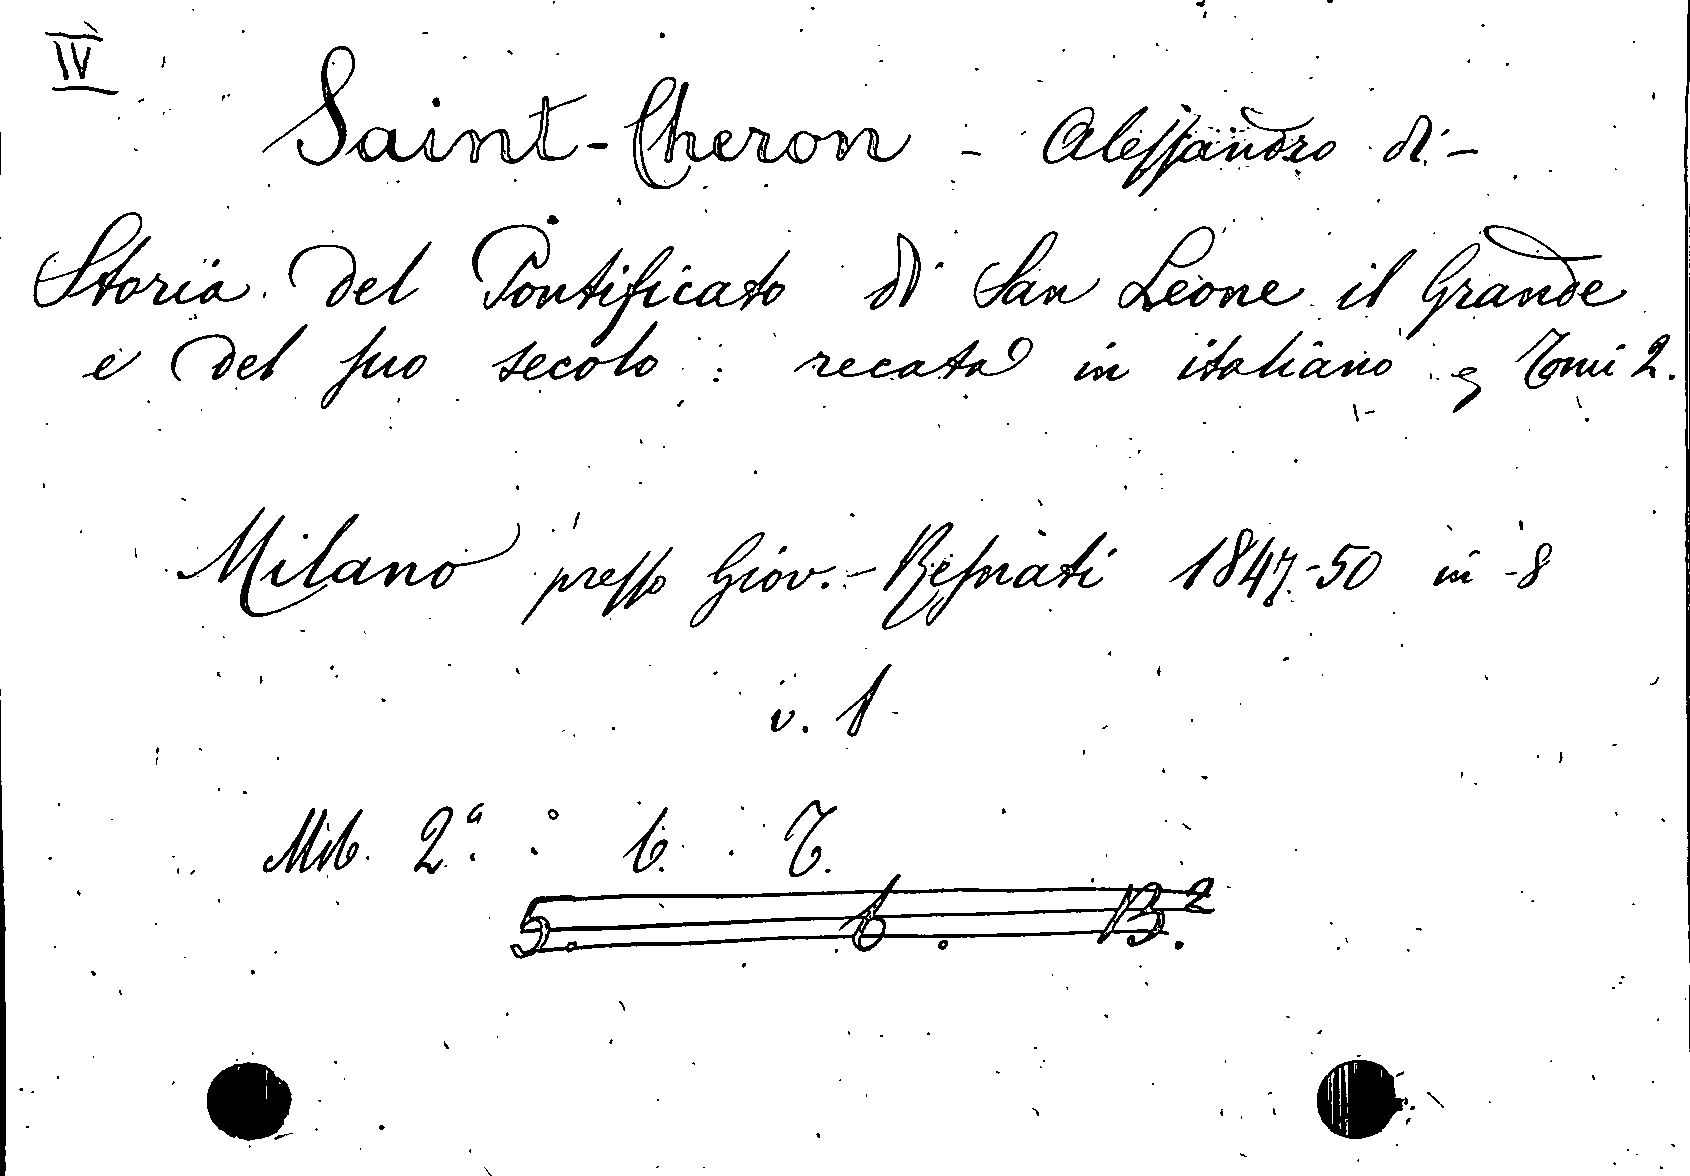 IV
Saint-Cheron - Alessandro di -
Storia del Pontificato di San Leone il Grande
e del suo secolo : recata in italiano Tomi 2.
Milano presso Giov. - Resnati 1847-50 in -8
v. 1
2.ª : 6. T.
5. 6. B.2